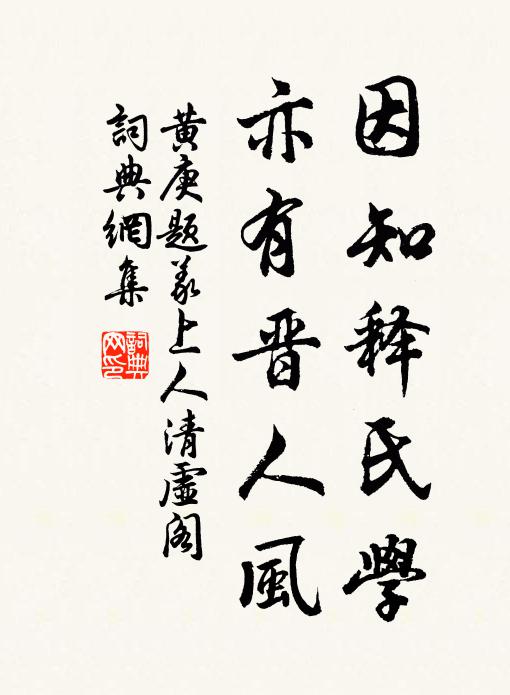 因知释氏學
亦有晋人風
黄庚题义上人清虛阁
詞典網集
詞典网印